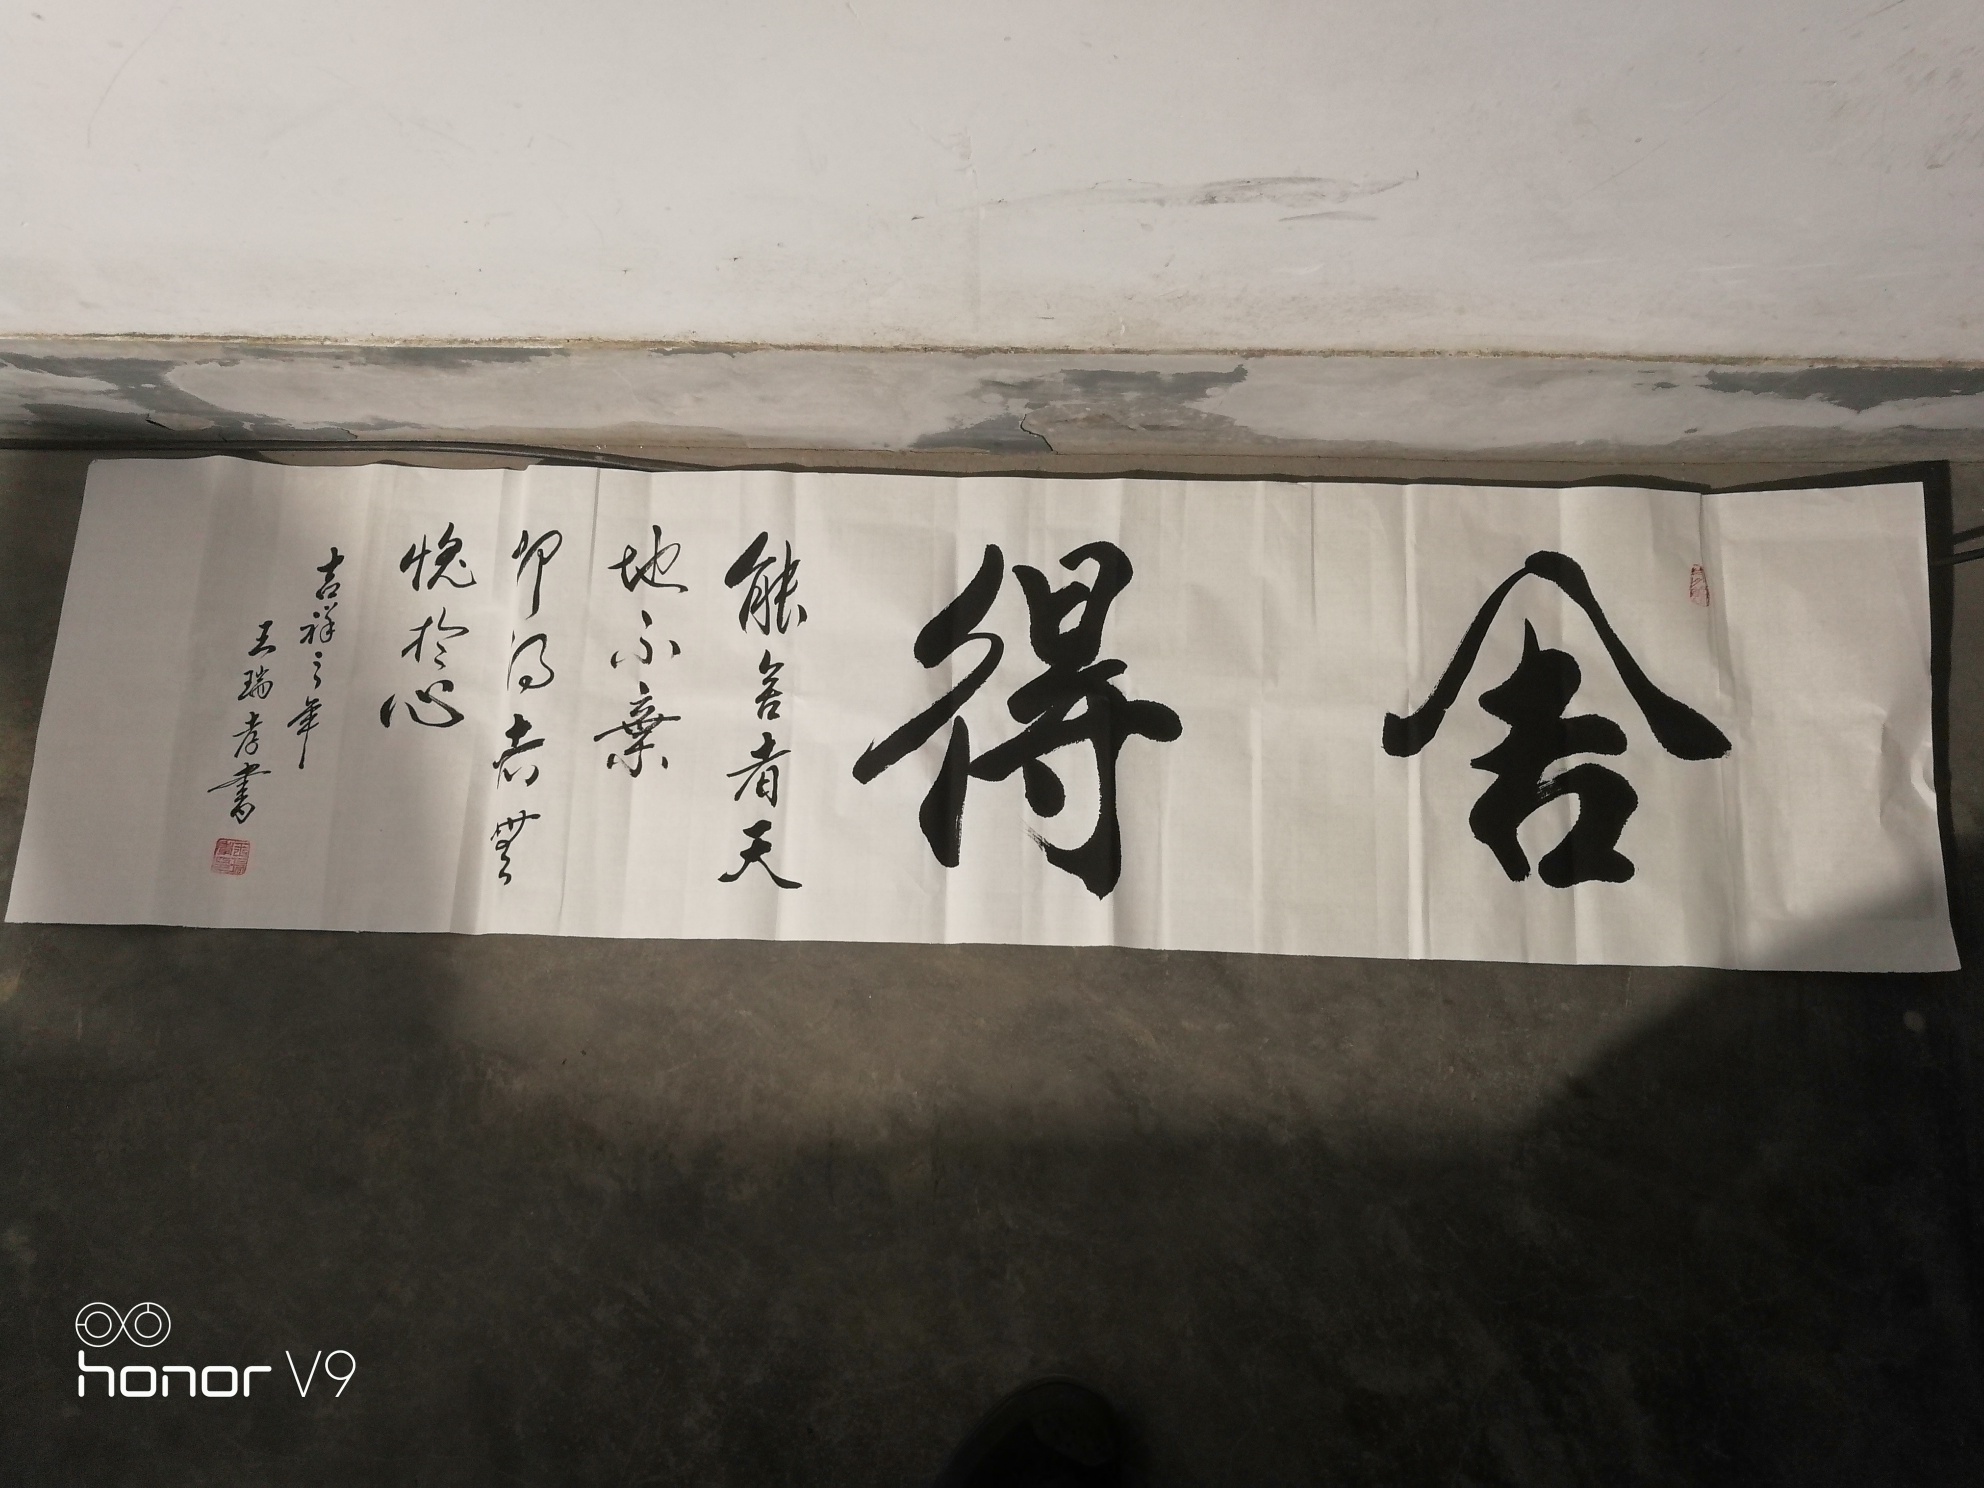 舍得
能舍者天
地不棄
卬得者無
愧於心
吉祥之年
王瑞孝書
honor V9